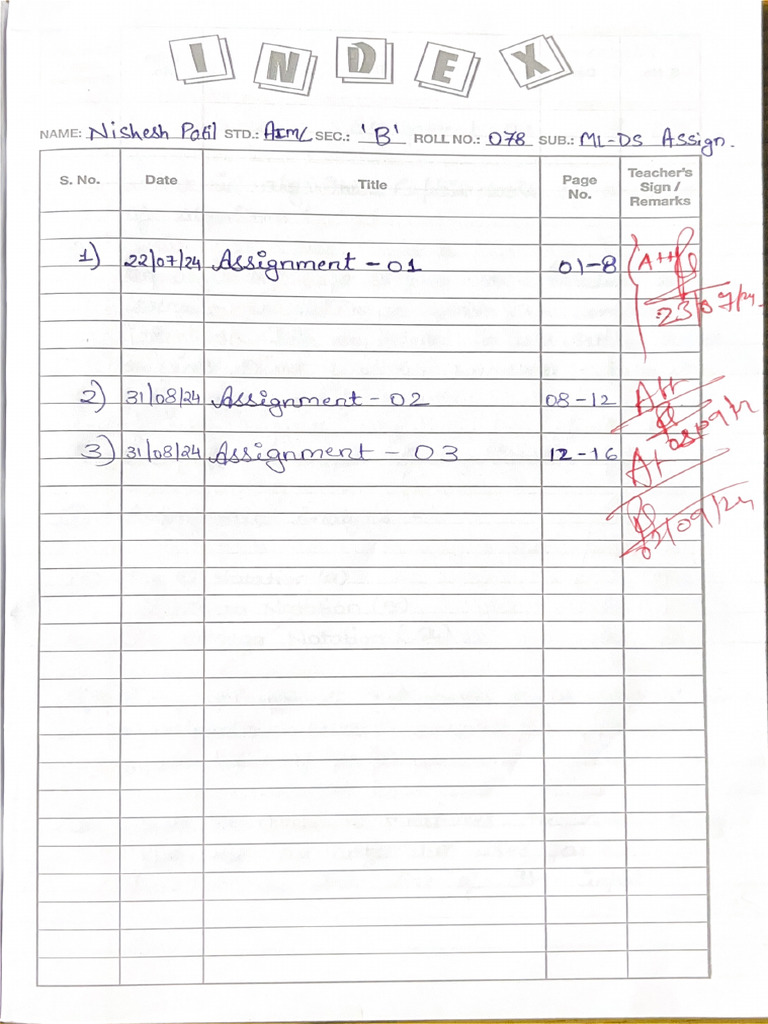 INDEX
NAME: Nishesh Patil STD.: AIML SEC.: 'B' ROLL NO.: 078 SUB.: ML-DS Assign.
S. No. Date Title Page No. Teacher's Sign / Remarks
1) 22/07/24 Assignment - 01 01-8 A++
23/07/24
2) 31/08/24 Assignment - 02 08-12 A++
3) 31/08/24 Assignment - 03 12-16 A+